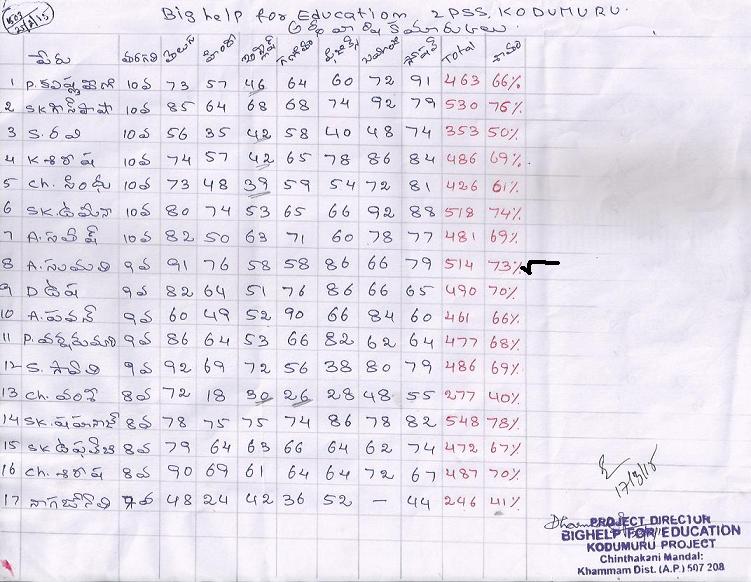 Big help for Education 2PSS. KODUMURU.
పేరు తరగతి తెలుగు హిందీ ఇంగ్లీష్ Total
1 P. 10వ 73 57 46 64 60 72 91 463 66%
2 SK. 10వ 85 64 68 68 74 92 79 530 76%
3 S. రవి 10వ 56 35 42 58 40 48 74 353 50%
4 K శిరీష 10వ 74 57 42 65 78 86 84 486 69%.
5 Ch. సింధు 10వ 73 48 39 59 54 72 81 426 61%
6 SK. 10వ 80 74 53 65 66 92 88 518 74%
7 A. సతీష్ 10వ 82 50 63 71 60 78 77 481 69%
8 A. సుమతి 9వ 91 76 58 58 86 66 79 514 73%
9 D ఉష 9వ 82 64 51 76 86 66 65 490 70%
10 A. పవన్ 9వ 60 49 52 90 66 84 60 461 66%
11 P. 9వ 86 64 53 66 82 62 64 477 68%
12 S. 9వ 92 69 72 56 38 80 79 486 69%
13 Ch. వంశీ 8వ 72 18 30 26 28 48 55 277 40%
14 SK. 8వ 78 75 75 74 86 78 82 548 78%
15 SK 8వ 79 64 63 66 64 62 74 472 67%
16 Ch. శిరీష 8వ 90 69 61 64 64 72 67 487 70%
17 7వ 48 24 42 36 52 - 44 246 41%
17/3/15
PROJECT DIRECTOR
BIGHELP FOR EDUCATION
KODUMURU PROJECT
Chinthakani Mandal:
Khammam Dist. (A.P.) 507 208